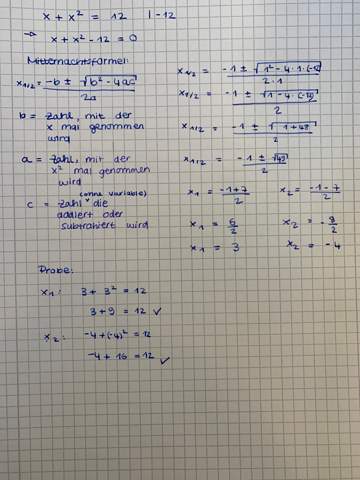 x + x² = 12 | -12
⇒ x + x² - 12 = 0
Mitternachtsformel:
x₁/₂ = (-b ± √(b² - 4ac)) / 2a
b = Zahl, mit der
x mal genommen
wird
a = Zahl, mit der
x² mal genommen
wird
(ohne Variable)
c = Zahl die
addiert oder
subtrahiert wird
x₁/₂ = (-1 ± √(1² - 4 · 1 · (-12))) / 2 · 1
x₁/₂ = (-1 ± √(1 - 4 · (-12))) / 2
x₁/₂ = (-1 ± √(1 + 48)) / 2
x₁/₂ = (-1 ± √49) / 2
x₁ = (-1+7) / 2 x₂ = (-1-7) / 2
x₁ = 6/2 x₂ = -8/2
x₁ = 3 x₂ = -4
Probe:
x₁: 3 + 3² = 12
3 + 9 = 12 ✓
x₂: -4 + (-4)² = 12
-4 + 16 = 12 ✓